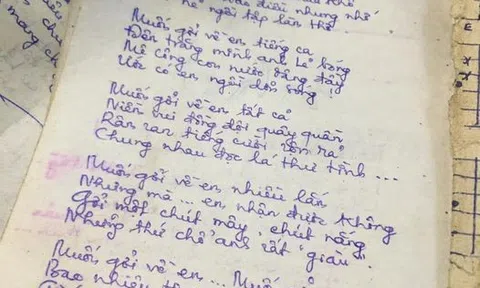 điều nhưng nhớ
ngồi tập làm thơ
Muốn gởi về em tiếng ca
Đêm trắng mình anh lẻ bóng
Mê Công con nước dâng đầy
Ước có em ngồi đón sóng!
Muốn gởi về em tất cả
Niềm vui đồng đội quây quần
Rân ran tiếng cười rôm rả
Chung nhau đọc lá thư tình...
Muốn gởi về em nhiều lắm
Nhưng mà... em nhận được không
Gởi một chút mây, chút nắng
Những thứ chỗ anh rất "giàu".
Muốn gởi về em... Muốn
Bao nhiêu